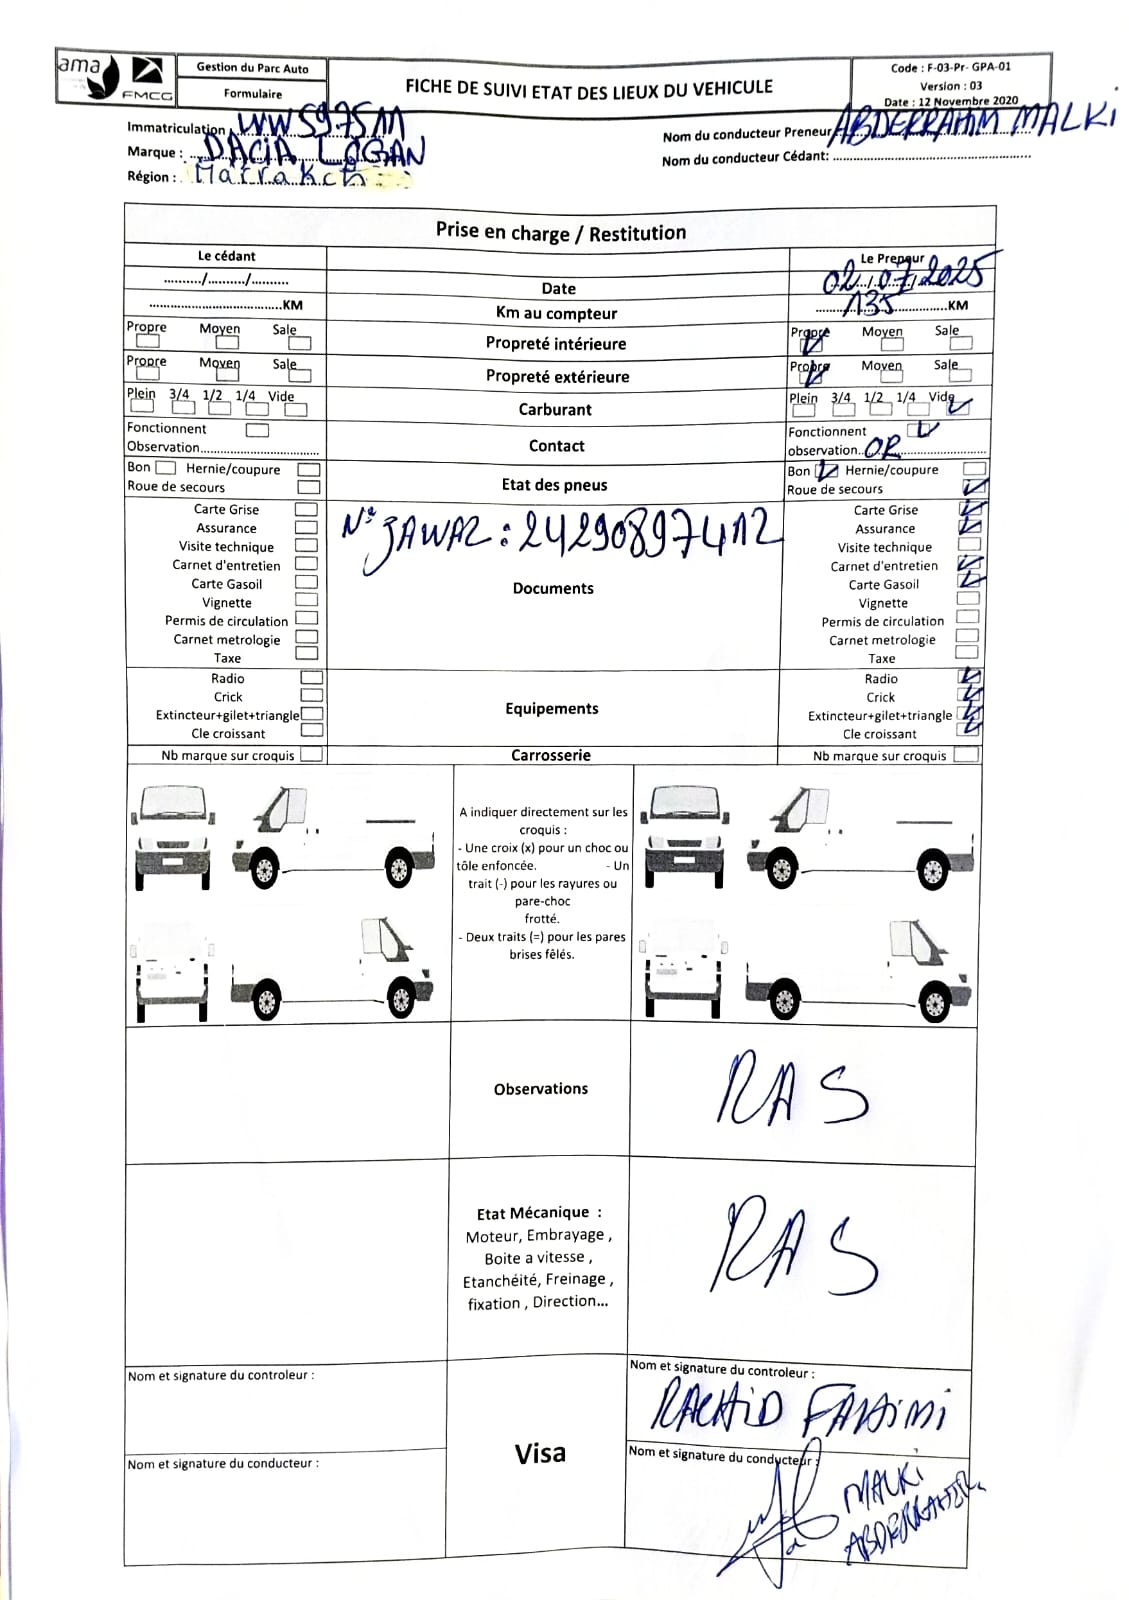 ama
FMCG
Gestion du Parc Auto
Formulaire
FICHE DE SUIVI ETAT DES LIEUX DU VEHICULE
Code : F-03-Pr- GPA-01
Version : 03
Date : 12 Novembre 2020
Immatriculation : WW597511
Marque : DACIA LOGAN
Région : Marrakch
Nom du conducteur Preneur ABDERRAHIM MALKI
Nom du conducteur Cédant: ................................................
Prise en charge / Restitution
Le cédant
Le Preneur
........../........../..........
Date
02/07/2025
..................................KM
Km au compteur
135 KM
Propre Moyen Sale
Propreté intérieure
Propre Moyen Sale
Propre Moyen Sale
Propreté extérieure
Propre Moyen Sale
Plein 3/4 1/2 1/4 Vide
Carburant
Plein 3/4 1/2 1/4 Vide
Fonctionnent
Observation..............................
Contact
Fonctionnent
observation..OR..............................
Bon Hernie/coupure
Roue de secours
Etat des pneus
Bon Hernie/coupure
Roue de secours
Carte Grise
Assurance
Visite technique
Carnet d'entretien
Carte Gasoil
Vignette
Permis de circulation
Carnet metrologie
Taxe
N° JAWAZ : 24290897412
Documents
Carte Grise
Assurance
Visite technique
Carnet d'entretien
Carte Gasoil
Vignette
Permis de circulation
Carnet metrologie
Taxe
Radio
Crick
Extincteur+gilet+triangle
Cle croissant
Equipements
Radio
Crick
Extincteur+gilet+triangle
Cle croissant
Nb marque sur croquis
Carrosserie
Nb marque sur croquis
A indiquer directement sur les
croquis :
- Une croix (x) pour un choc ou
tôle enfoncée. - Un
trait (-) pour les rayures ou
pare-choc
frotté.
- Deux traits (=) pour les pares
brises fêlés.
Observations
RAS
Etat Mécanique :
Moteur, Embrayage ,
Boite a vitesse ,
Etanchéité, Freinage ,
fixation , Direction...
RAS
Nom et signature du controleur :
Nom et signature du conducteur :
Visa
Nom et signature du controleur :
RACHID FAHIMI
Nom et signature du conducteur :
MALKI